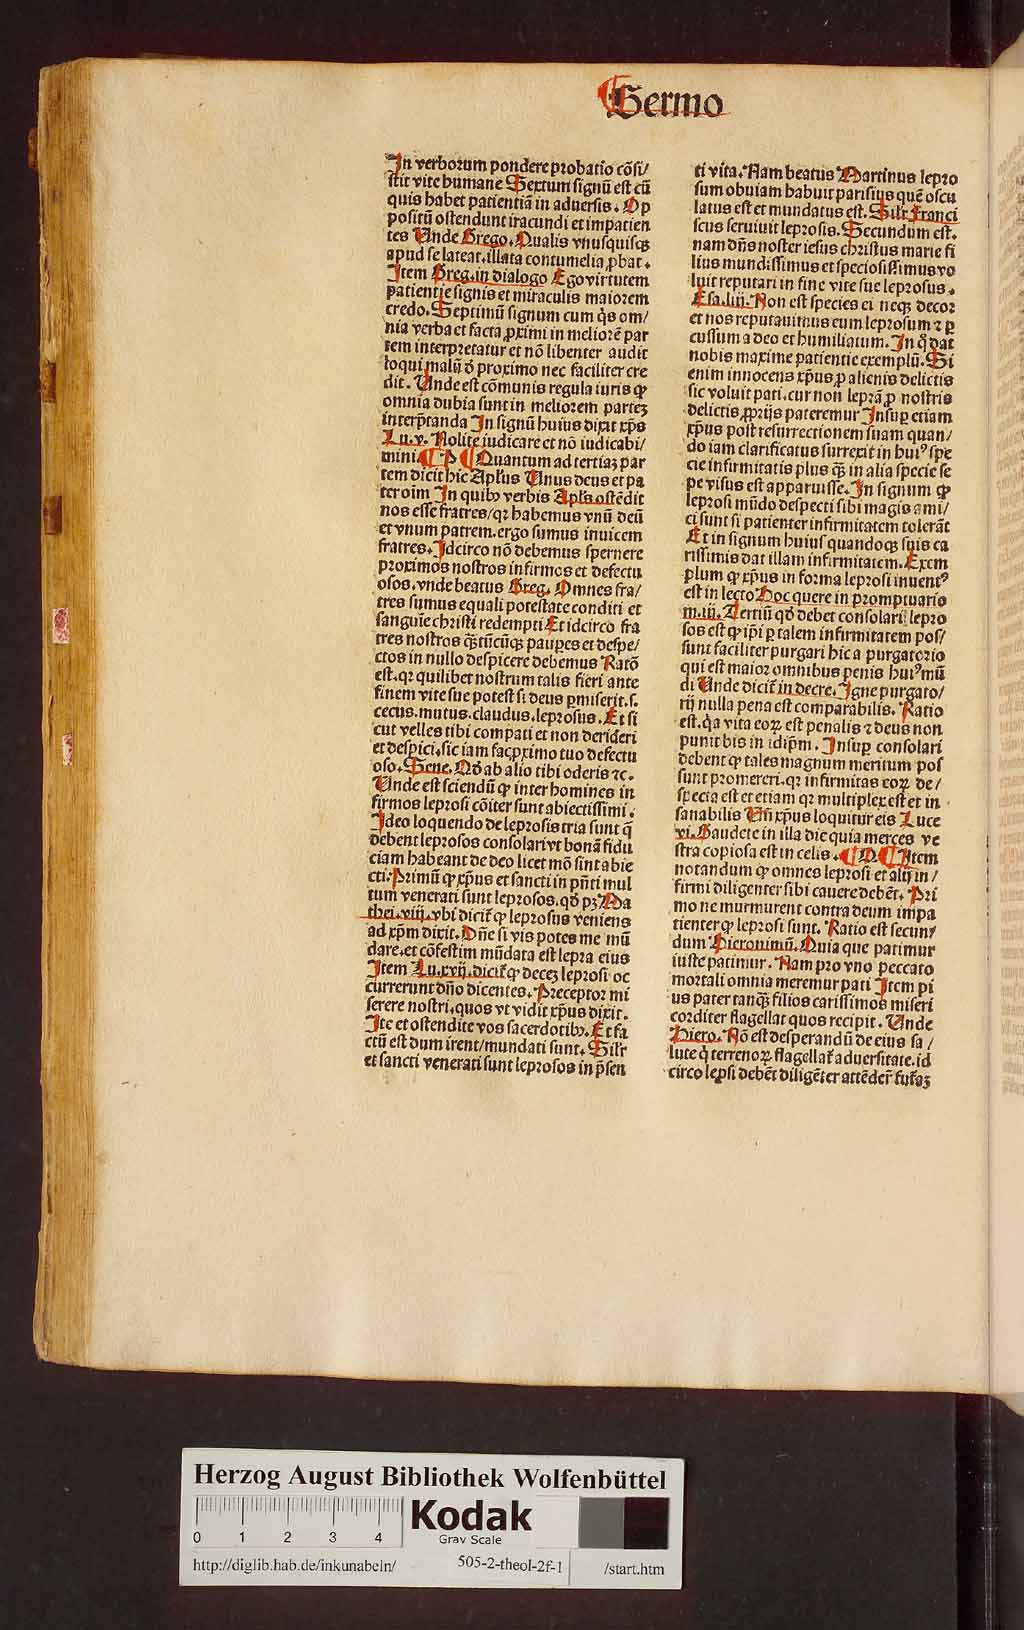 Sermo
In verborum pondere probatio cõsi/
stit vite humane Sextum signũ est cũ
quis habet patientiã in aduersis. Op
positũ ostendunt iracundi et impatien
tes Unde Grego. Qualis vnusquisqꝫ
apud se lateat. illata contumelia ꝓbat.
Item Greg. in dialogo Ego virtutem
patientie signis et miraculis maiorem
credo. Septimũ signum cum qͥs om/
nia verba et facta ꝓximi in meliorẽ par
tem interpretatur et nõ libenter audit
loqui malũ ð proximo nec faciliter cre
dit. Unde est cõmunis regula iuris ꝙ
omnia dubia sunt in meliorem partẽ
interp̃tanda In signũ huius dixit xp̃s
Lu. v. Nolite iudicare et nõ iudicabi/
mini. ¶ P ¶ Quantum ad tertiaꝫ par
tem dicit hic Apl̃us Unus deus et pa
ter oim̃ In quibꝰ verbis Apl̃s ostẽdit
nos esse fratres/ qꝛ habemus vnũ deũ
et vnum patrem. ergo sumus inuicem
fratres. Idcirco nõ debemus spernere
proximos nostros infirmos et defectu
osos. vnde beatus Greg. Omnes fra/
tres sumus equali potestate conditi et
sanguie christi redempti Et idcirco fra
tres nostros qͣ̃tũcũqꝫ paup̲es et despe/
ctos in nullo despicere debemus Ratõ
est. qꝛ quilibet nostrum talis fieri ante
finem vite sue potest si deus p̲miserit. s.
cecus. mutus. claudus. leprosus. Et si
cut velles tibi compati et non derideri
et despici. sic iam fac ꝓximo tuo defectu
oso. Sene. Qð ab alio tibi oderis ⁊c.
Unde est sciendũ ꝙ inter homines in
firmos leprosi cõiter sunt abiectissimi.
Ideo loquendo de leprosis tria sunt q̃
debent leprosos consolari vt bonã fidu
ciam habeant de deo licet mõ sint abie
cti. Primũ ꝙ xp̃us et sancti in pñti mul
tum venerati sunt leprosos. qð pꝫ Ma
thei. viij. vbi dicit̃ ꝙ leprosus veniens
ad xp̃m dixit. Dñe si vis potes me mũ
dare. et cõfestim mũdata est lepra eius
Item Lu. xvij. dicit̃ ꝙ deceꝫ leprosi oc
currerunt dño dicentes. Preceptor mi
serere nostri. quos vt vidit xp̃us dixit.
Ite et ostendite vos sacerdotibꝰ. Et fa
ctũ est dum irent/ mundati sunt. Sil̃r
et sancti venerati sunt leprosos in p̃sen
ti vita. Nam beatus Martinus lepro
sum obuiam habuit parisius quẽ oscu
latus est et mundatus est. Sil̃r Franci
scus seruiuit leprosis. Secundum est.
nam dñs noster iesus christus marie fi
lius mundissimus et speciosissimus vo
luit reputari in fine vite sue leprosus.
Esa. liij. Non est species ei neqꝫ decor
et nos reputauimus eum leprosum ⁊ p̲
cussum a deo et humiliatum. In qͦ dat
nobis maxime patientie exemplũ. Si
enim innocens xp̃us ꝓ alienis delictis
sic voluit pati. cur non leprã ꝓ nostris
delictis ꝓprijs pateremur Insup̲ etiam
xp̃us post resurrectionem suam quan/
do iam clarificatus surrexit in huiꝰ spe
cie infirmitatis plus qͣ̃ in alia specie se
pe visus est apparuisse. In signum ꝙ
leprosi mũdo despecti sibi magis ami/
ci sunt si patienter infirmitatem tolerãt
Et in signum huiꝰ quandoqꝫ suis ca
rissimis dat illam infirmitatem. Exem
plum ꝙ xp̃us in forma leprosi inuentꝰ
est in lecto Hoc quere in promptuario
m. iij. Tertiũ qð debet consolari lepro
sos est ꝙ ip̃i p̲ talem infirmitatem pos/
sunt faciliter purgari hic a purgatorio
qui est maior omnibus penis huiꝰ mũ
di Unde dicit̃ in decre. Igne purgato/
rij nulla pena est comparabilis. Ratio
est. qͣ̃ vita eoꝝ est penalis ⁊ deus non
punit bis in idip̃m. Insup̲ consolari
debent ꝙ tales magnum meritum pos
sunt promereri. qꝛ infirmitas eoꝝ de/
specta est et etiam qꝛ multiplex est et in
sanabilis Uñ xp̃us loquitur eis Luce
vi. Gaudete in illa die quia merces ve
stra copiosa est in celis. ¶ Q. ¶ Item
notandum ꝙ omnes leprosi et alij in/
firmi diligenter sibi cauere debẽt. Pri
mo ne murmurent contra deum impa
tienter ꝙ leprosi sunt. Ratio est secun/
dum Hieronimũ. Quia que patimur
iuste patimur. Nam pro vno peccato
mortali omnia meremur pati Item pi
us pater tanqͣ̃ filios carissimos miseri
corditer flagellat quos recipit. Unde
Hiero. Nõ est desperandũ de eius sa/
lute qͥ terrenoꝝ flagellat̃ aduersitate. id
circo lep̲si debẽt diligẽter attẽder̃
Herzog August Bibliothek Wolfenbüttel
0 1 2 3 4
Kodak
Gray Scale
http://diglib.hab.de/inkunabeln/ 505-2-theol-2f-1 /start.htm